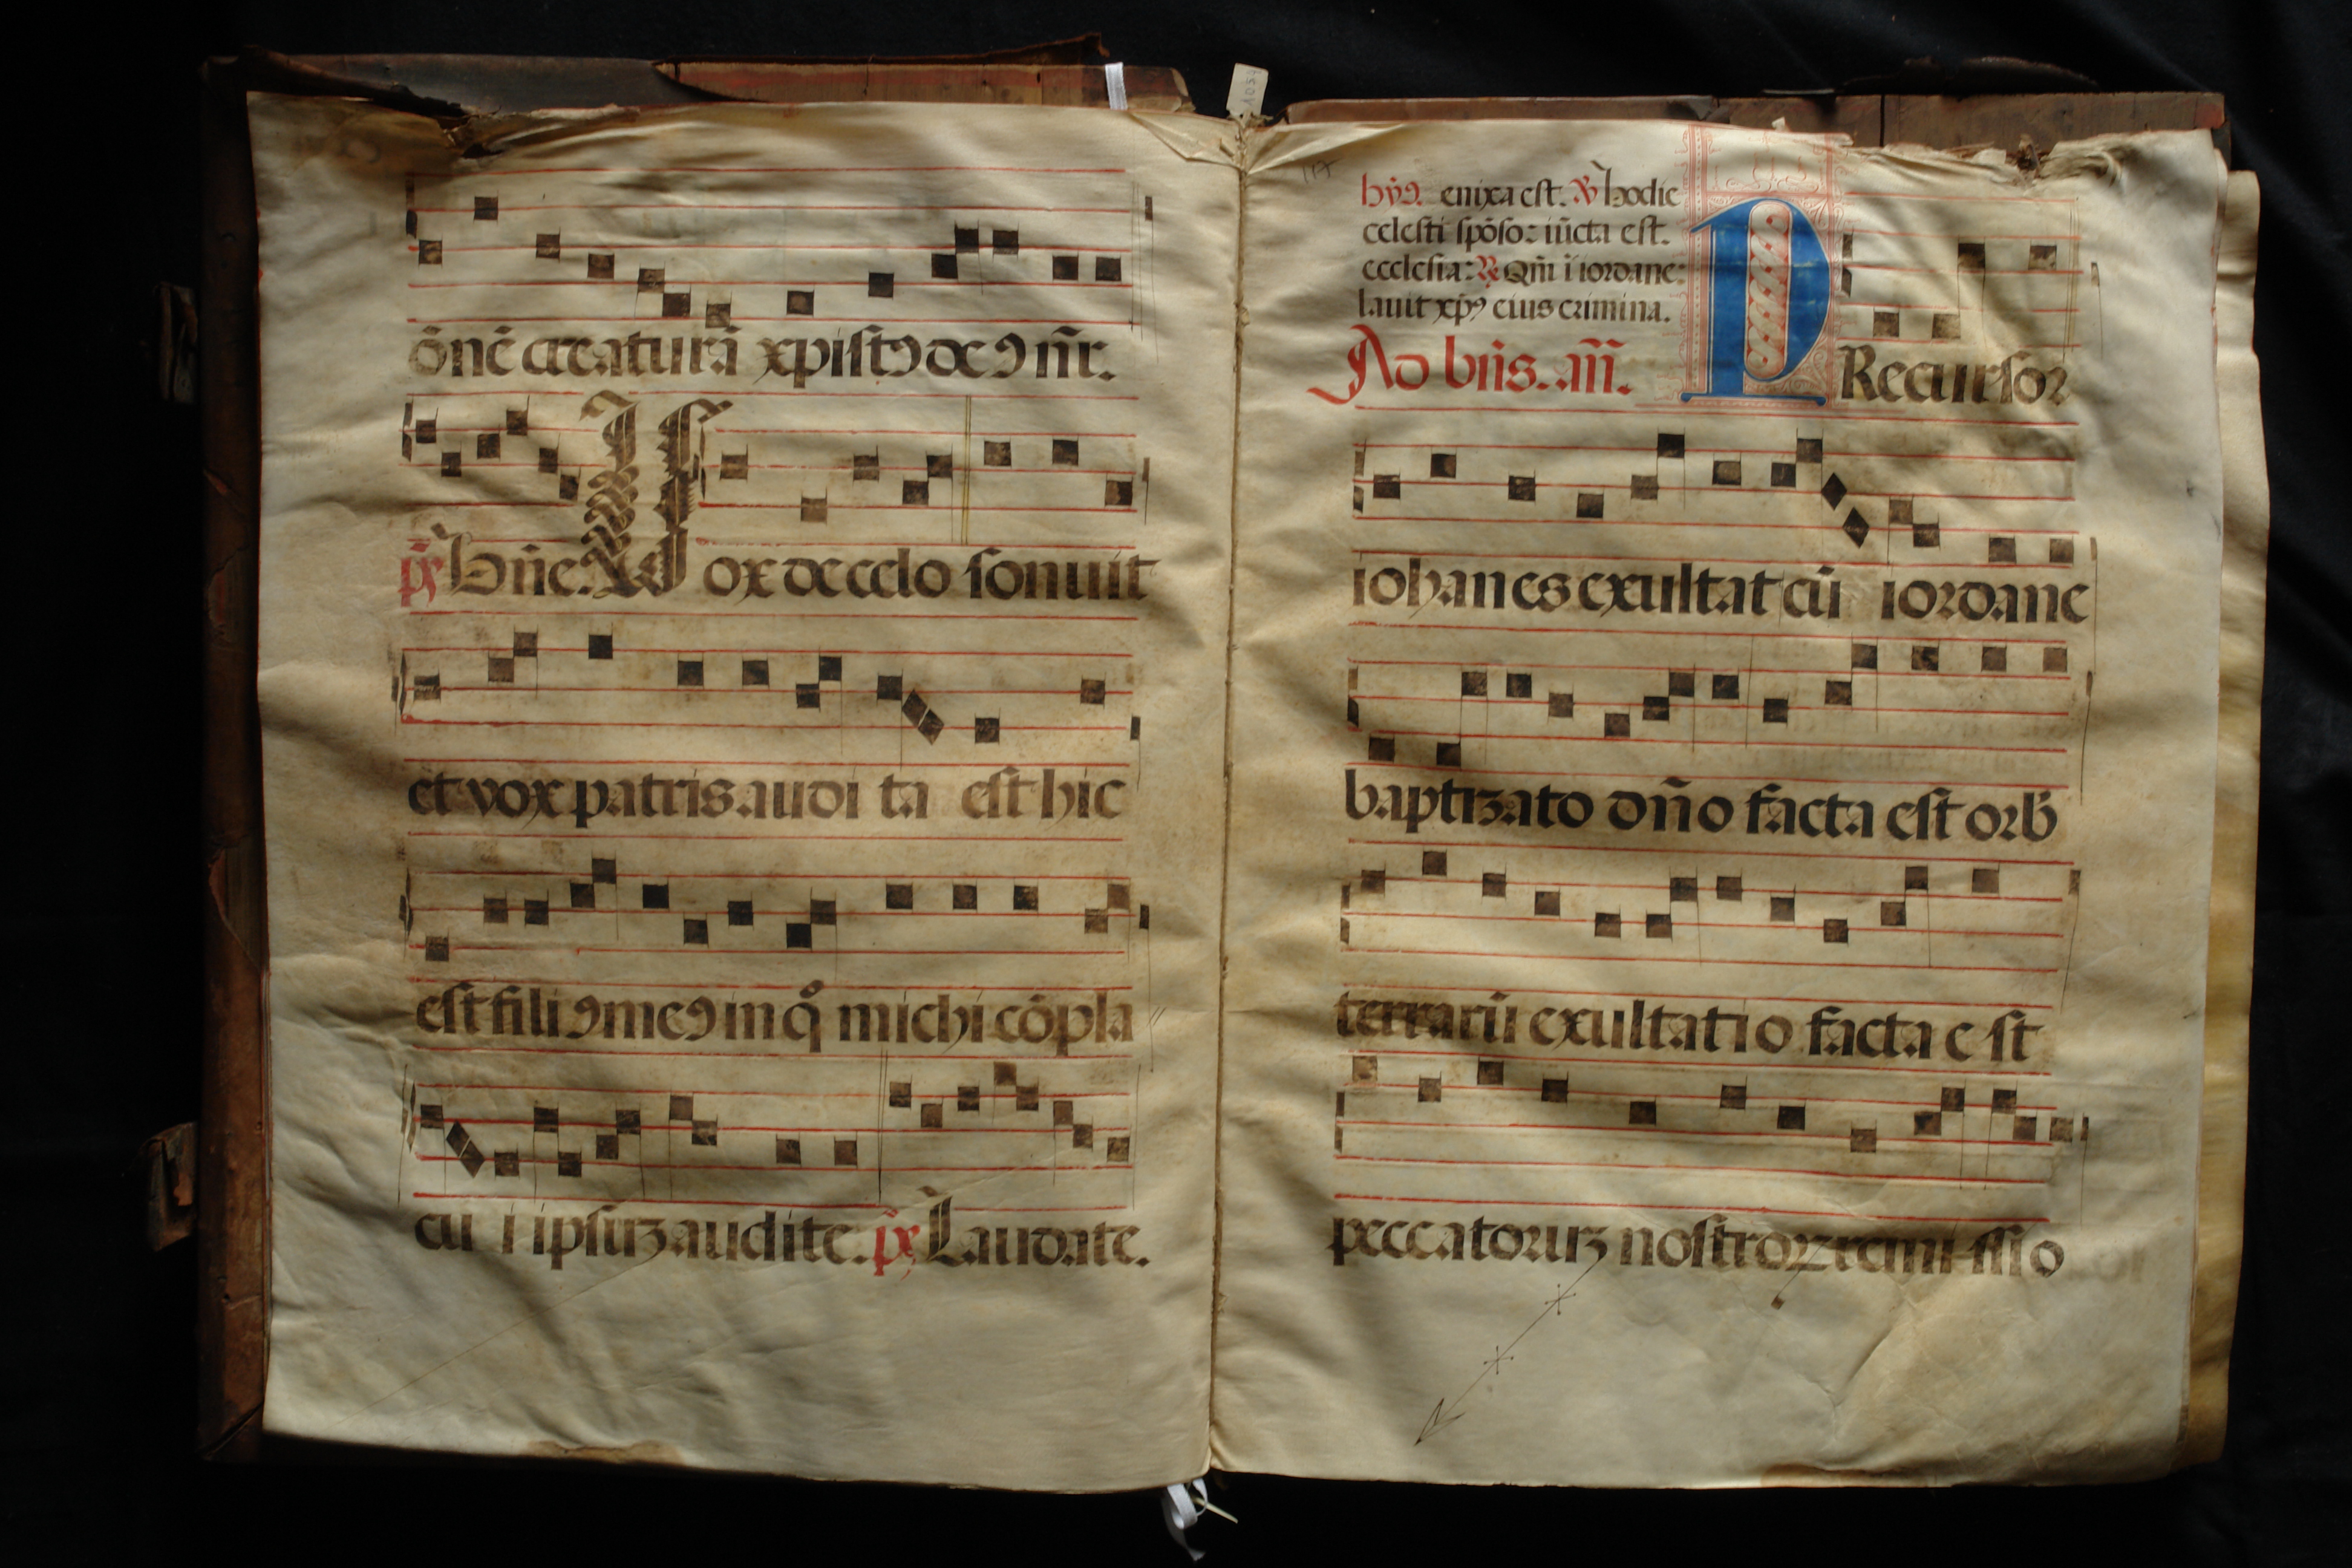 õnẽ creaturã xpistꝯ deꝯ nr̃.
px̃ Bñe. Vox de celo sonuit
et vox patris audi ta est hic
est filiꝯ meꝯ in qͦ michi cõpla
cu i ipsuꝫ audite. px̃ Laudate.
hỹꝯ. enixa est. ℣ Hodie
celesti spõso: iũcta est.
ecclesia: ℟ Qm̃ ĩ iordane:
lauit xp̃ꝯ eius crimina.
Ad bñs. añ. PRecursor
iohanes exultat cũ iordane
baptizato dño facta est orb̃
terrarũ exultatio facta e st
peccatoruꝫ nostroꝝ remi ssio